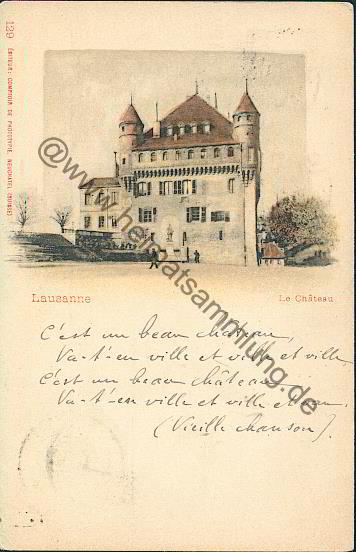 129 ÉDITEUR: COMPTOIR DE PHOTOTYPIE, NEUCHATEL (SUISSE)
@www.heimatsammlung.de
Lausanne
Le Château
C'est un beau château,
Va-t'en ville et ville et ville
C'est un beau château
Va-t'en ville et ville et eau.
(Vieille chanson).